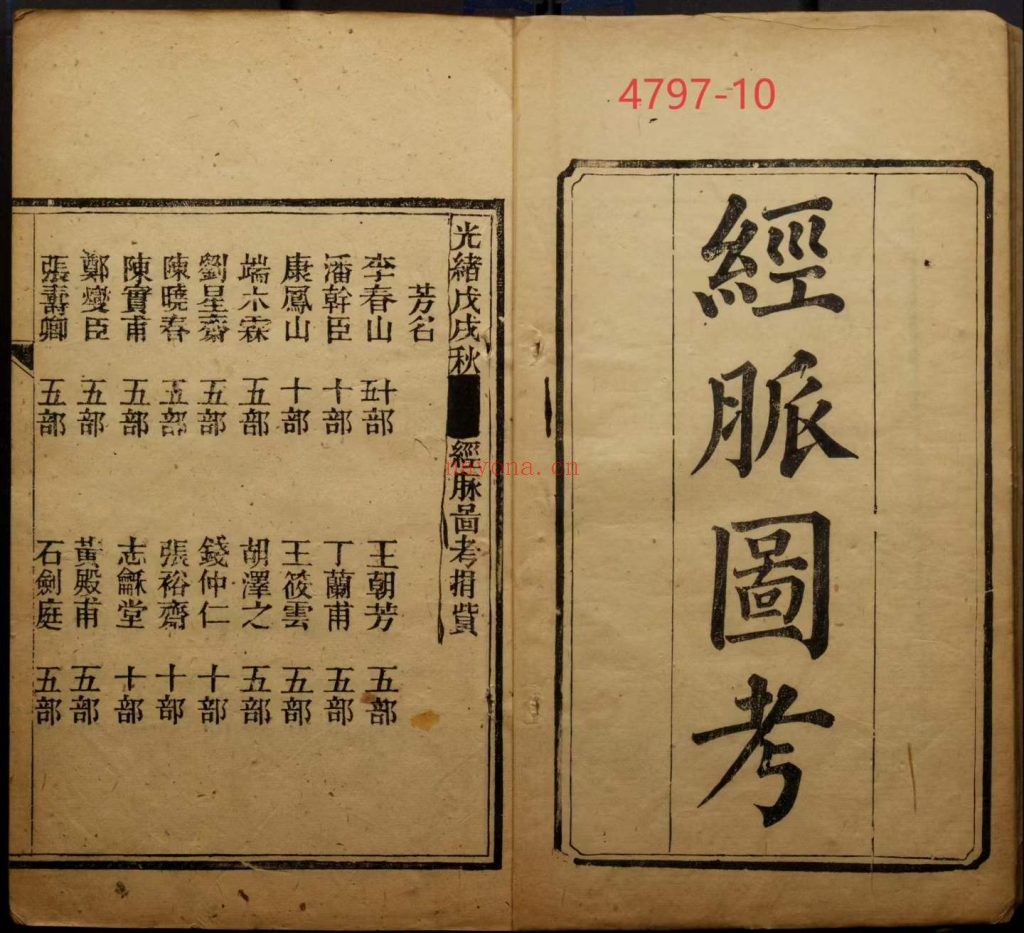 4797-10
經脈圖考
光緒戊戌秋 經脉啚考捐貲
芳名
李春山 十五部 王朝芳 五部
潘幹臣 十部 丁蘭甫 五部
康鳳山 十部 王筱雲 五部
端木霖 五部 胡澤之 五部
劉星齋 五部 錢仲仁 十部
陳曉春 五部 張裕齋 十部
陳實甫 五部 志龢堂 十部
鄭燮臣 五部 黃殿甫 五部
張壽卿 五部 石劍庭 五部
nayona.cn